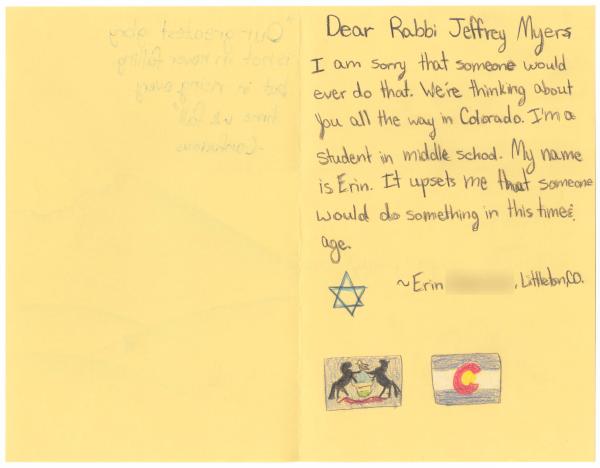 "Our greatest glory
is not in never falling
but in rising every
time we fall"
-Confucius
Dear Rabbi Jeffrey Myers
I am sorry that someone would
ever do that. We're thinking about
you all the way in Colorado. I'm a
student in middle school. My name
is Erin. It upsets me that someone
would do something in this time &
age.
~Erin , Littleton, CO.